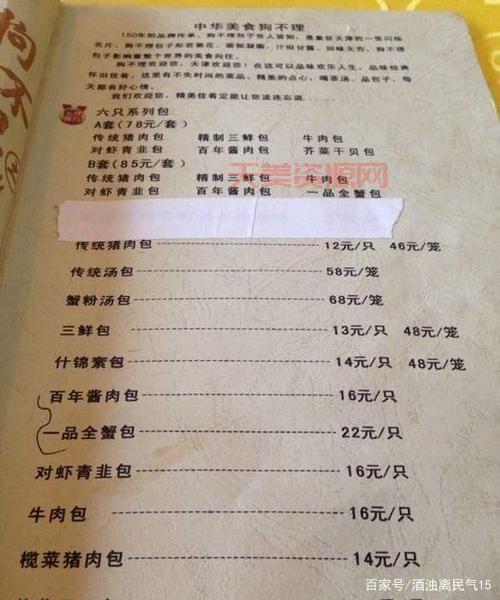 中华美食狗不理
150年的品牌传承，狗不理包子世人皆知，是象征天津的一张闪烁
名片。狗不理包子形若菊花，面如凝脂，汁似甘露，回味无穷。狗不理
包子影响着整个世界的美食向往。
狗不理欢迎您，天津欢迎您！在这可以品味欢乐人生，品味经典
怀旧佳肴，这里有不失时尚的菜品，精美的点心，喝茶汤，品包子，每
天都有好心情。
我们欢迎您，精美佳肴定能让您流连忘返……
六只系列包
A套（78元/套）
传统猪肉包 精制三鲜包 牛肉包
对虾青韭包 百年酱肉包 芥菜干贝包
B套（85元/套）
传统猪肉包 精制三鲜包 牛肉包
对虾青韭包 百年酱肉包 一品全蟹包
传统猪肉包 12元/只 46元/笼
传统汤包 58元/笼
蟹粉汤包 68元/笼
三鲜包 13元/只 48元/笼
什锦素包 14元/只 48元/笼
百年酱肉包 16元/只
一品全蟹包 22元/只
对虾青韭包 16元/只
牛肉包 16元/只
榄菜猪肉包 14元/只
天美资源网
百家号/酒浊离民气15